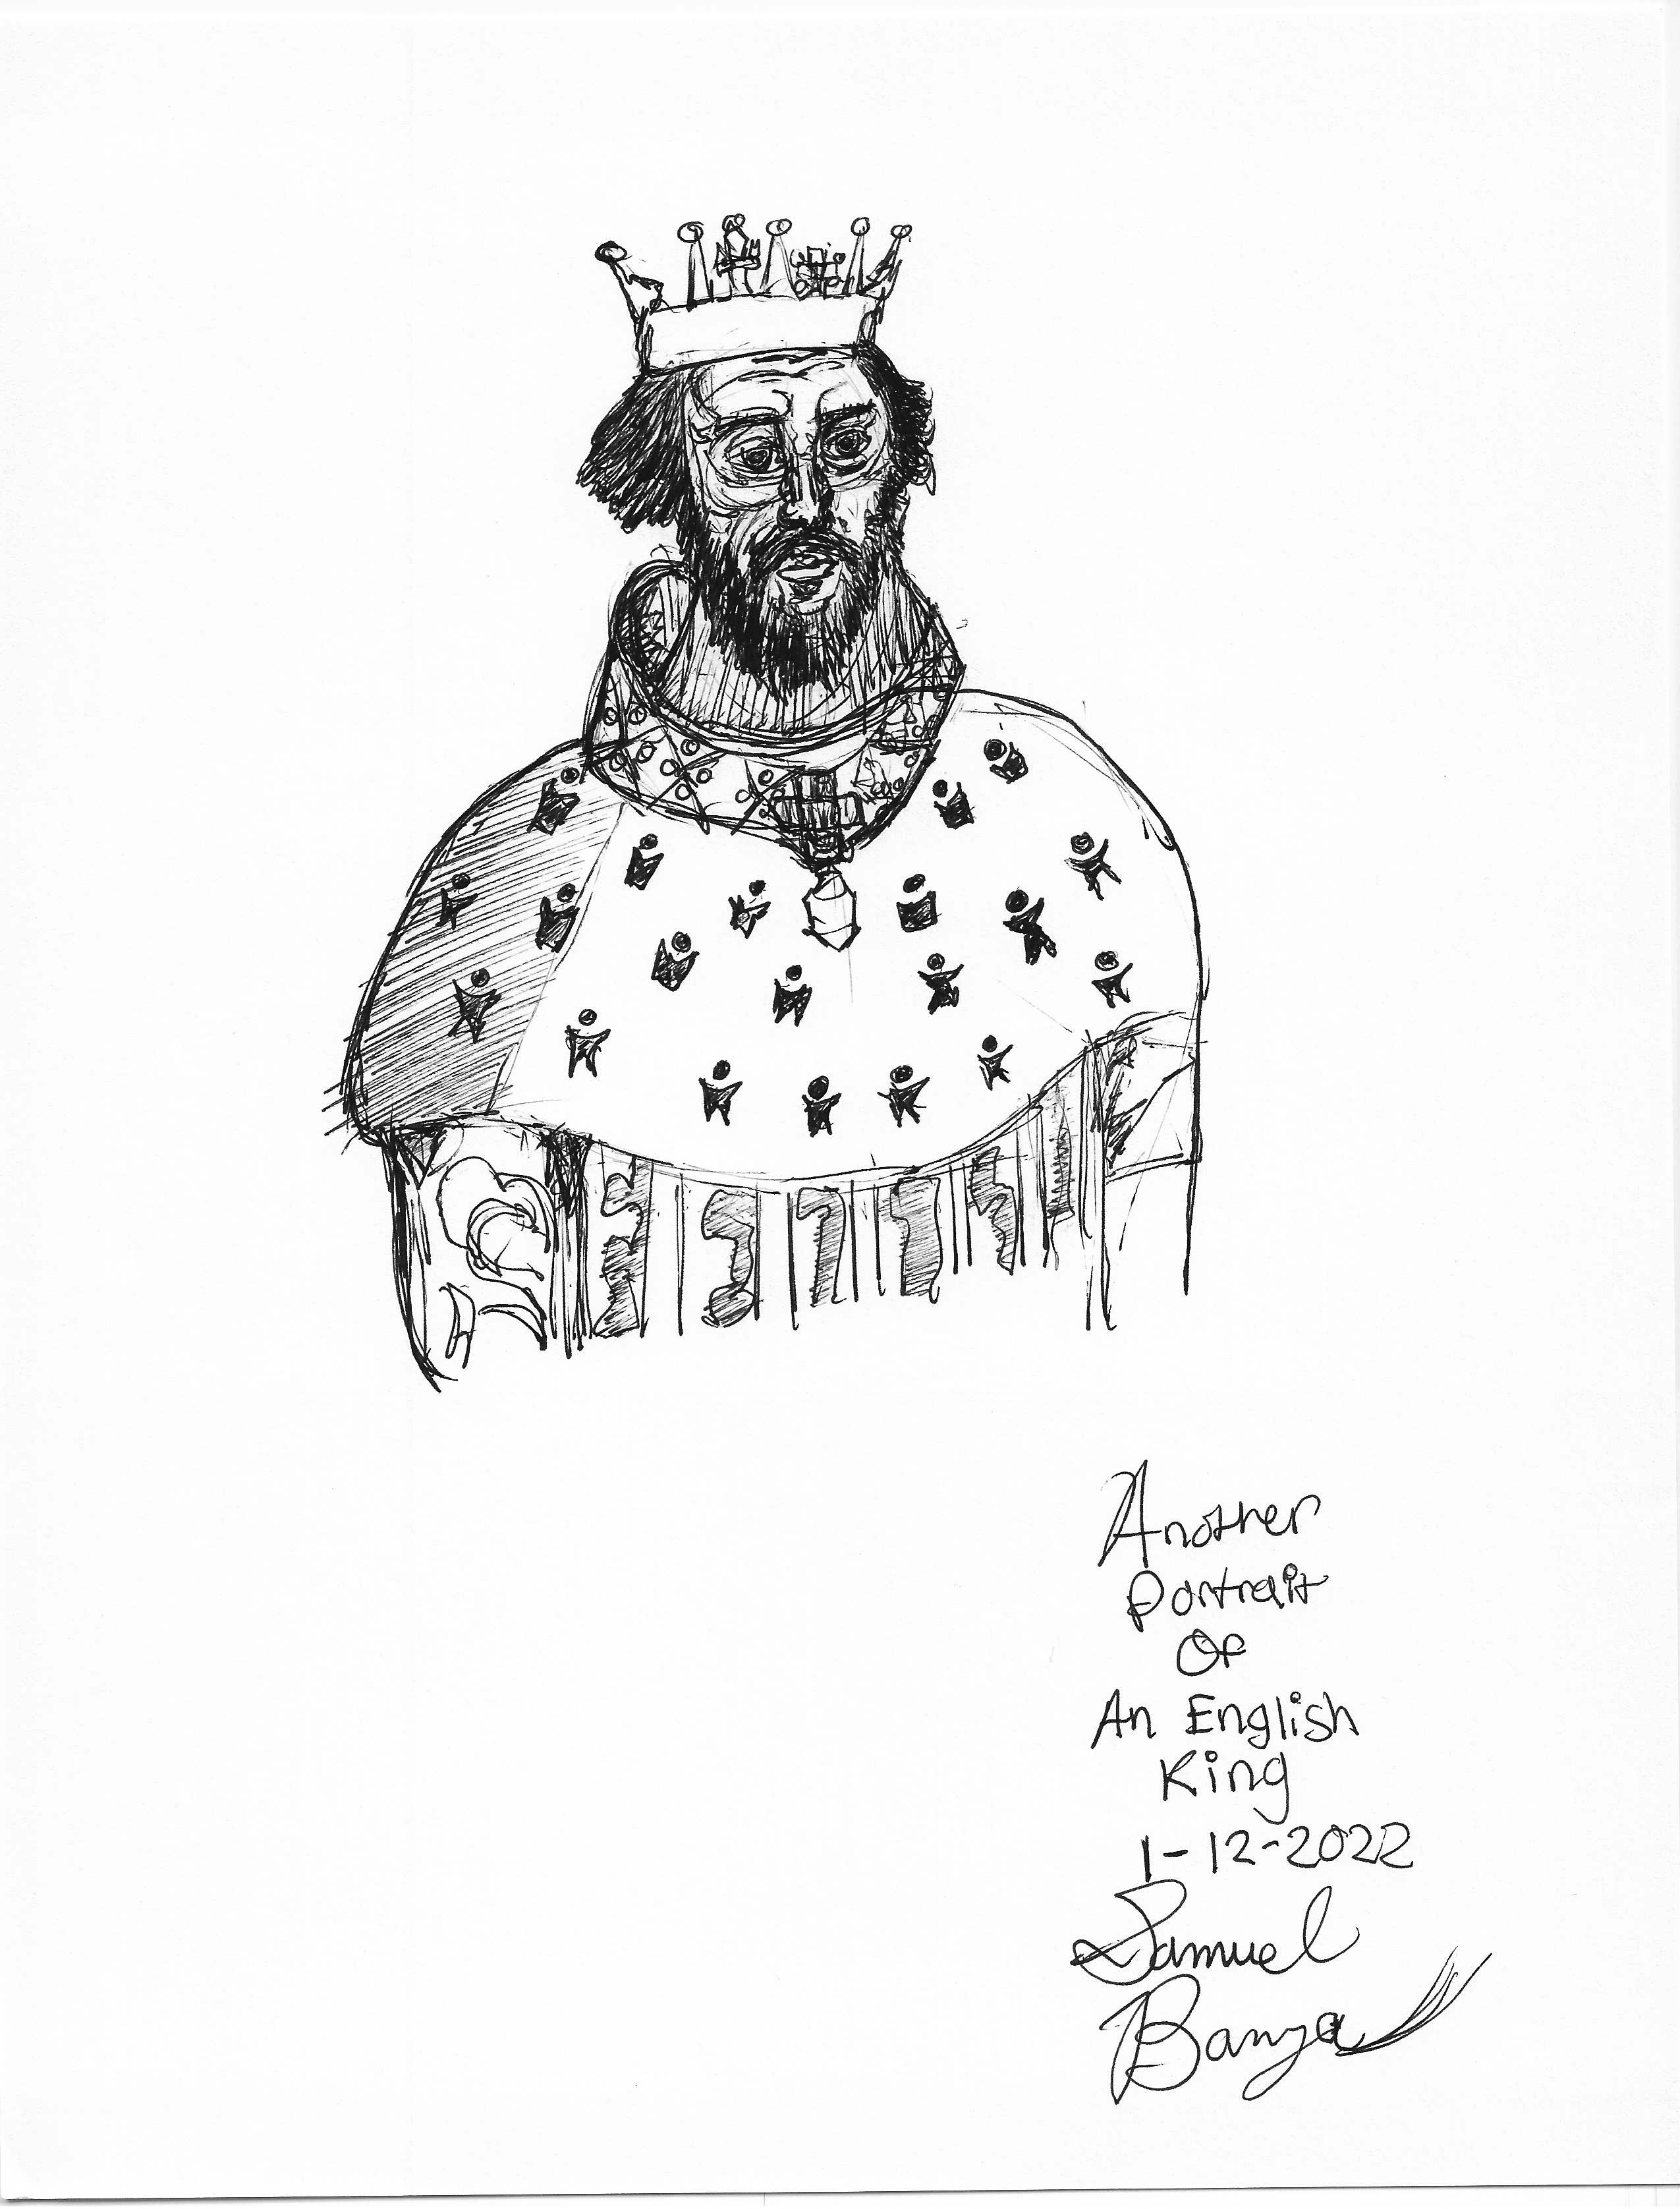 Another
Portrait
Of
An English
King
1-12-2022
Samuel
Banya